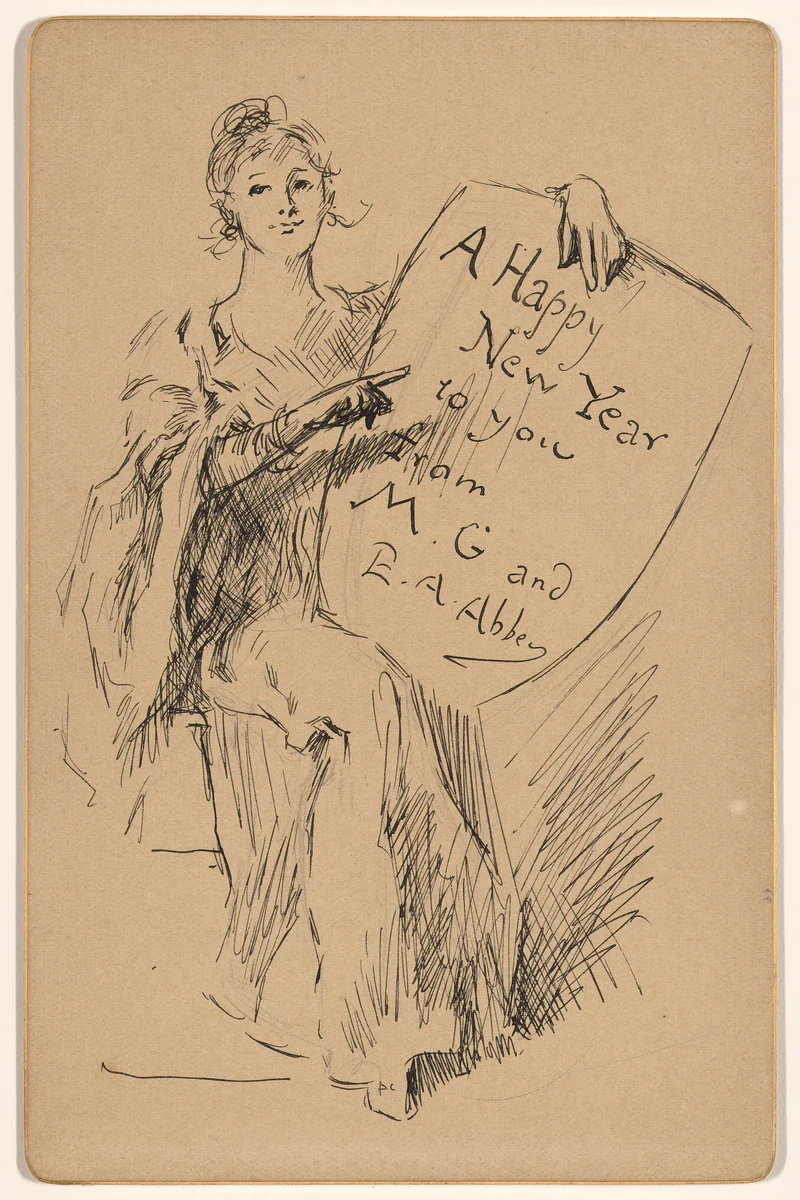 A Happy
New Year
to you
from
M. G and
E. A. Abbey